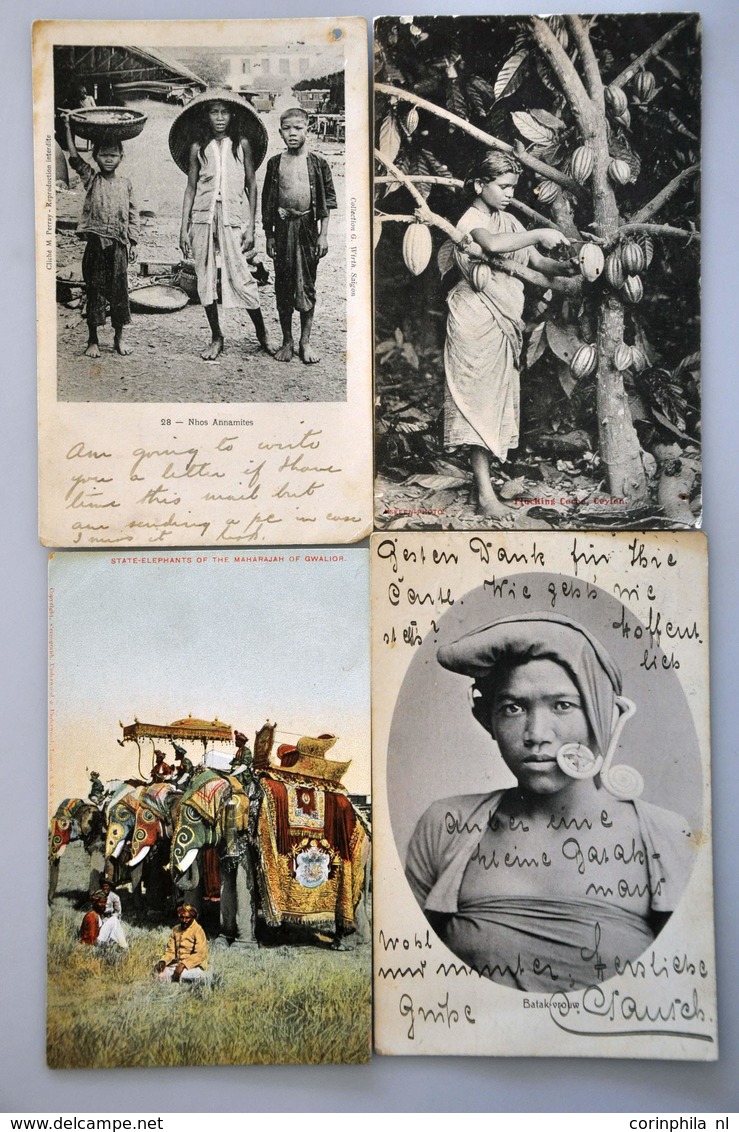 Cliché M. Perray - Reproduction interdite
Collection G. Wirth, Saigon
28 — Nhos Annamites
Am going to write
you a letter if I have
time this mail but
am sending a pc in case
I miss it
Plucking Cocoa, Ceylon.
SKEEN-PHOTO
STATE-ELEPHANTS OF THE MAHARAJAH OF GWALIOR.
Gesten Dank für Ihre
Carte. Wie geht's wie
stets? Hoffent-
lich
außer eine
kleine Batak-
maus
wohl
und munter. Herzliche
Grüße
Batak-vrouw
corinphila nl